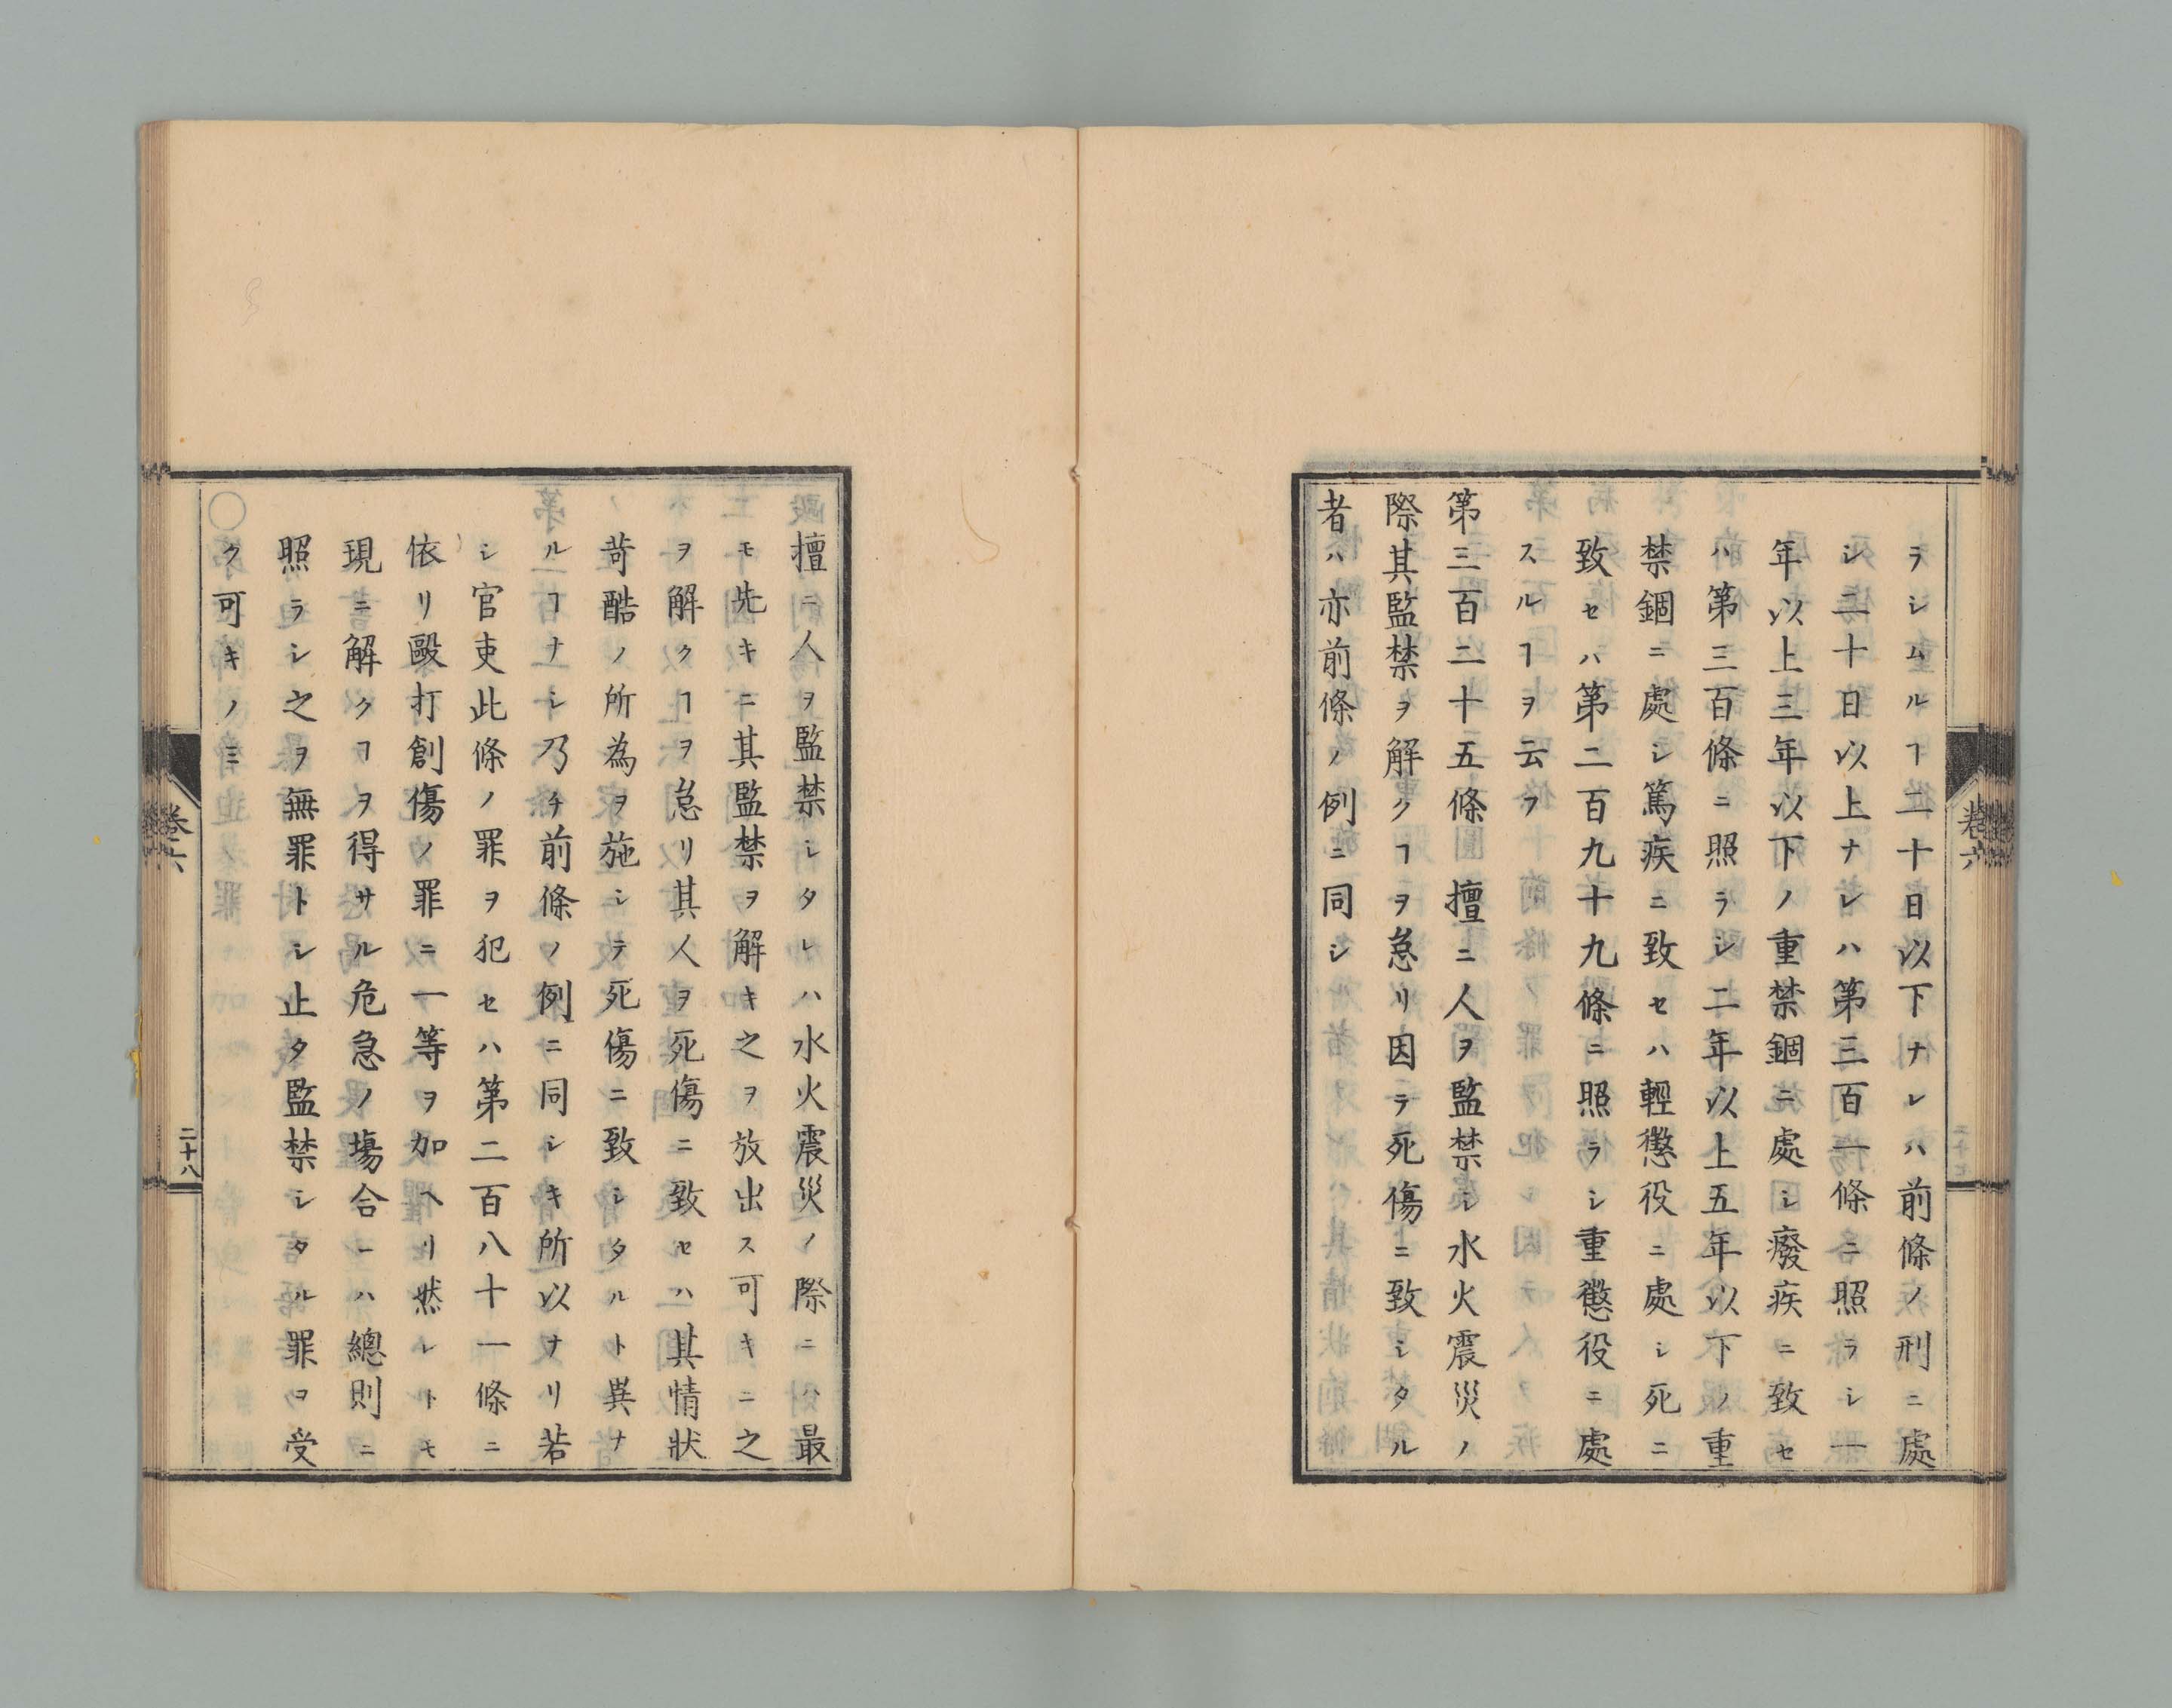 ラシムルヿ二十日以下ナレハ前條ノ刑ニ處
シ二十日以上ナレハ第三百一條ニ照ラシ一
年以上三年以下ノ重禁錮ニ處シ癈疾ニ致セ
ハ第三百條ニ照ラシ二年以上五年以下ノ重
禁錮ニ處シ篤疾ニ致セハ輕懲役ニ處シ死ニ
致セハ第二百九十九條ニ照ラシ重懲役ニ處
スルヿヲ云フ
第三百二十五條擅ニ人ヲ監禁シ水火震災ノ
際其監禁ヲ解クヿヲ怠リ因テ死傷ニ致シタル
者ハ亦前條ノ例ニ同シ
卷六
擅ニ人ヲ監禁シタレハ水火震災ノ際ニハ最
モ先キニ其監禁ヲ解キ之ヲ放出ス可キニ之
ヲ解クヿヲ怠リ其人ヲ死傷ニ致セハ其情狀
苛酷ノ所為ヲ施シテ死傷ニ致シタルト異ナ
ルヿナシ乃チ前條ノ例ニ同シキ所以ナリ若
シ官吏此條ノ罪ヲ犯セハ第二百八十一條ニ
依リ毆打創傷ノ罪ニ一等ヲ加ヘリ然レトモ
現ニ解クヿヲ得サル危急ノ塲合ーハ總則ニ
照ラシ之ヲ無罪トシ止タ監禁シタル罪ヲ受
ク可キノミ
卷六
二十八